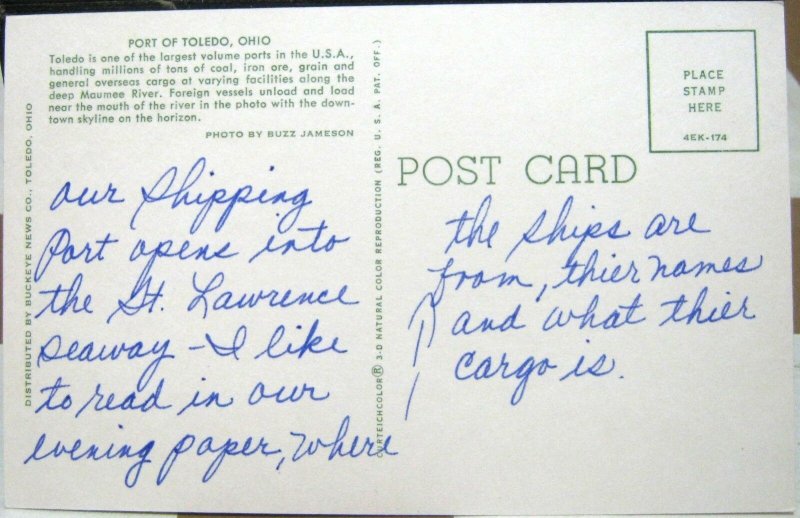 PORT OF TOLEDO, OHIO
Toledo is one of the largest volume ports in the U.S.A.,
handling millions of tons of coal, iron ore, grain and
general overseas cargo at varying facilities along the
deep Maumee River. Foreign vessels unload and load
near the mouth of the river in the photo with the down-
town skyline on the horizon.
PHOTO BY BUZZ JAMESON
DISTRIBUTED BY BUCKEYE NEWS CO., TOLEDO, OHIO
our Shipping
Port opens into
the St. Lawrence
Seaway - I like
to read in our
evening paper, where
CURTEICHCOLOR® 3-D NATURAL COLOR REPRODUCTION (REG. U. S. A. PAT. OFF.)
POST CARD
PLACE
STAMP
HERE
4EK-174
the ships are
from, thier names
and what thier
cargo is.